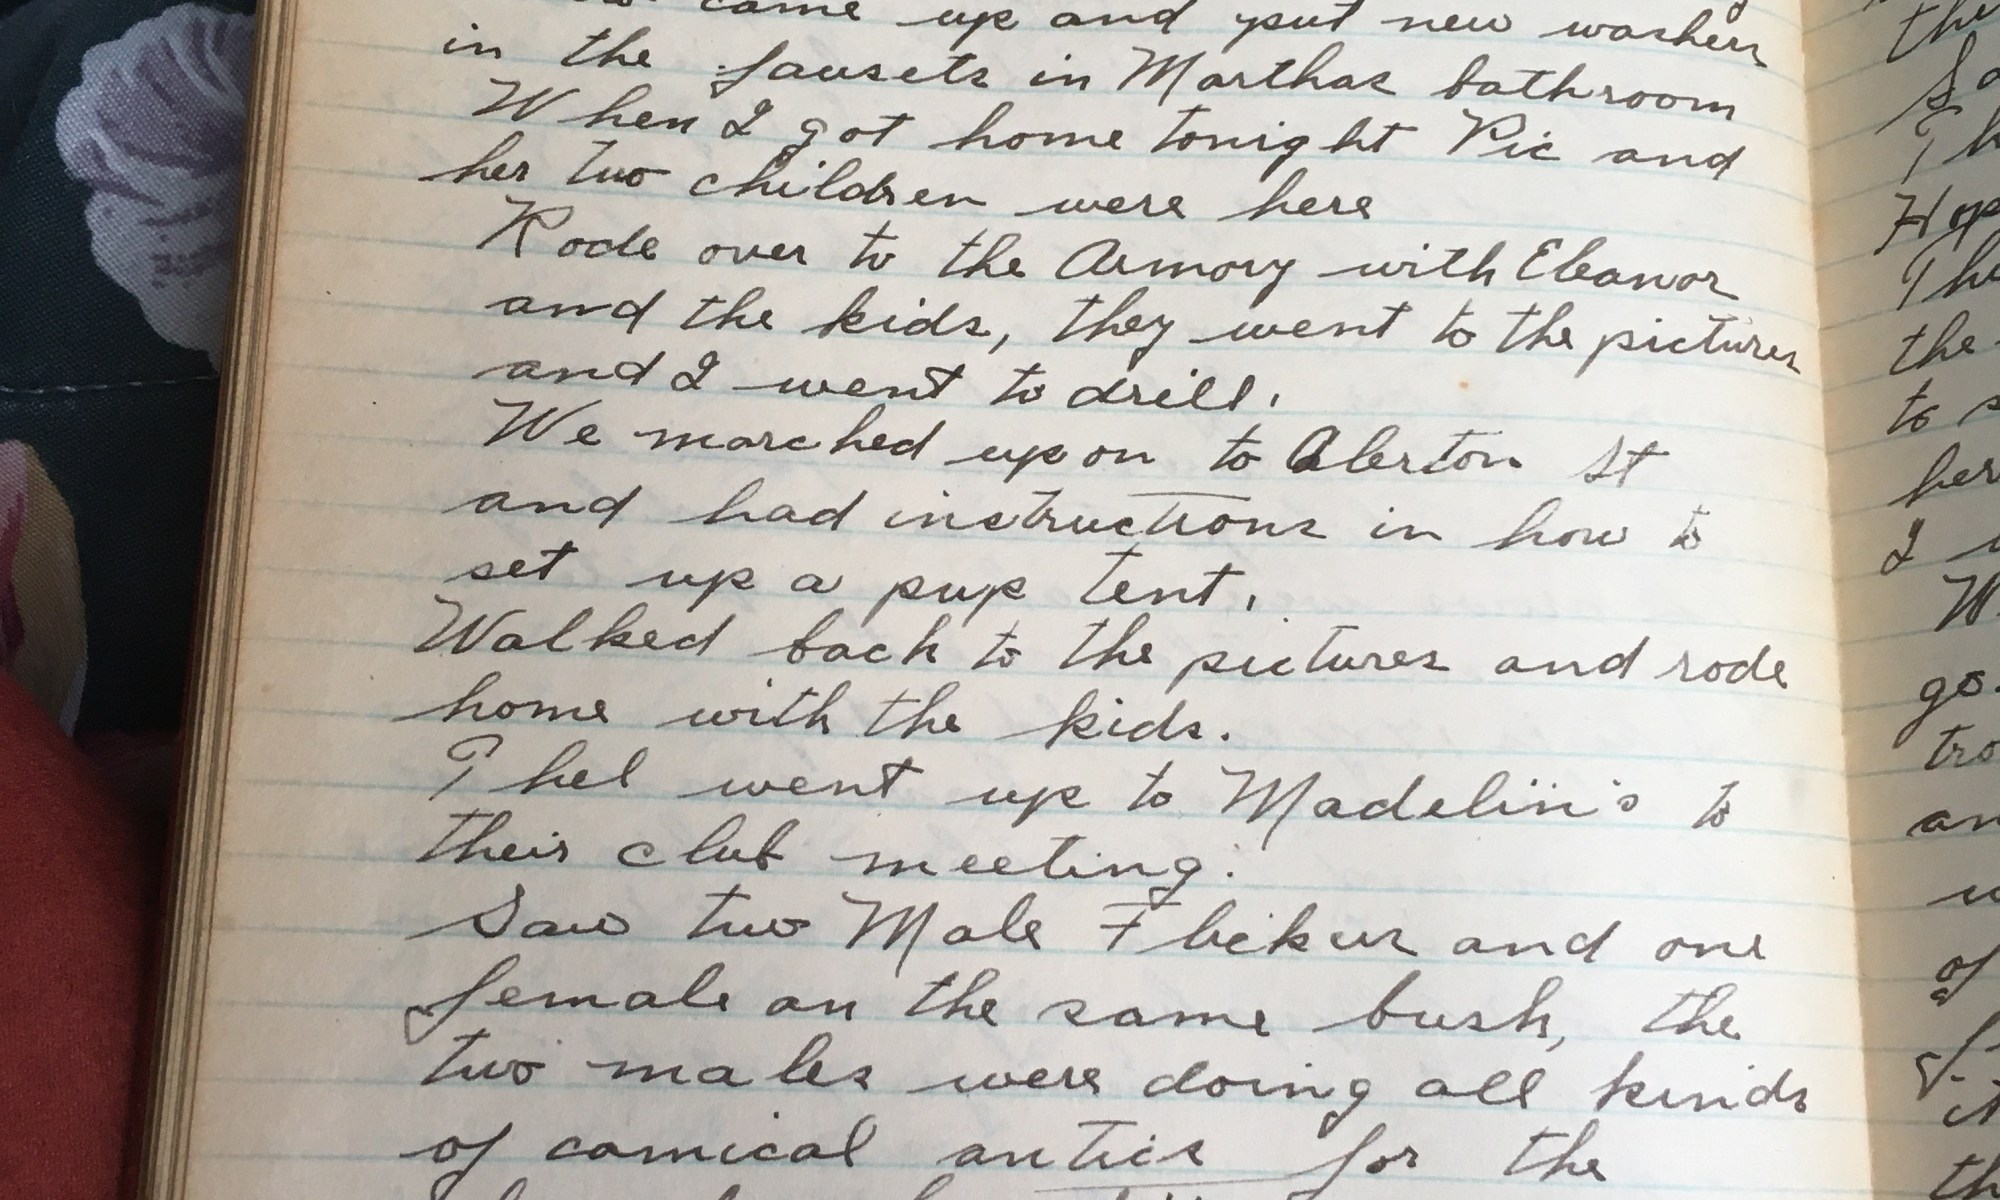 came up and put new washers
in the fausets in Marthas bathroom
When I got home tonight Pic and
her two children were here
Rode over to the Armory with Eleanor
and the kids, they went to the pictures
and I went to drill.
We marched up on to Alerton St
and had instructions in how to
set up a pup tent.
Walked back to the pictures and rode
home with the kids.
Thel went up to Madelin's to
their club meeting.
Saw two Male Flickers and one
female on the same bush, the
two males were doing all kinds
of comical antics for the
the
Th
Hop
The
the
to s
her
I
W
go.
tro
an
of